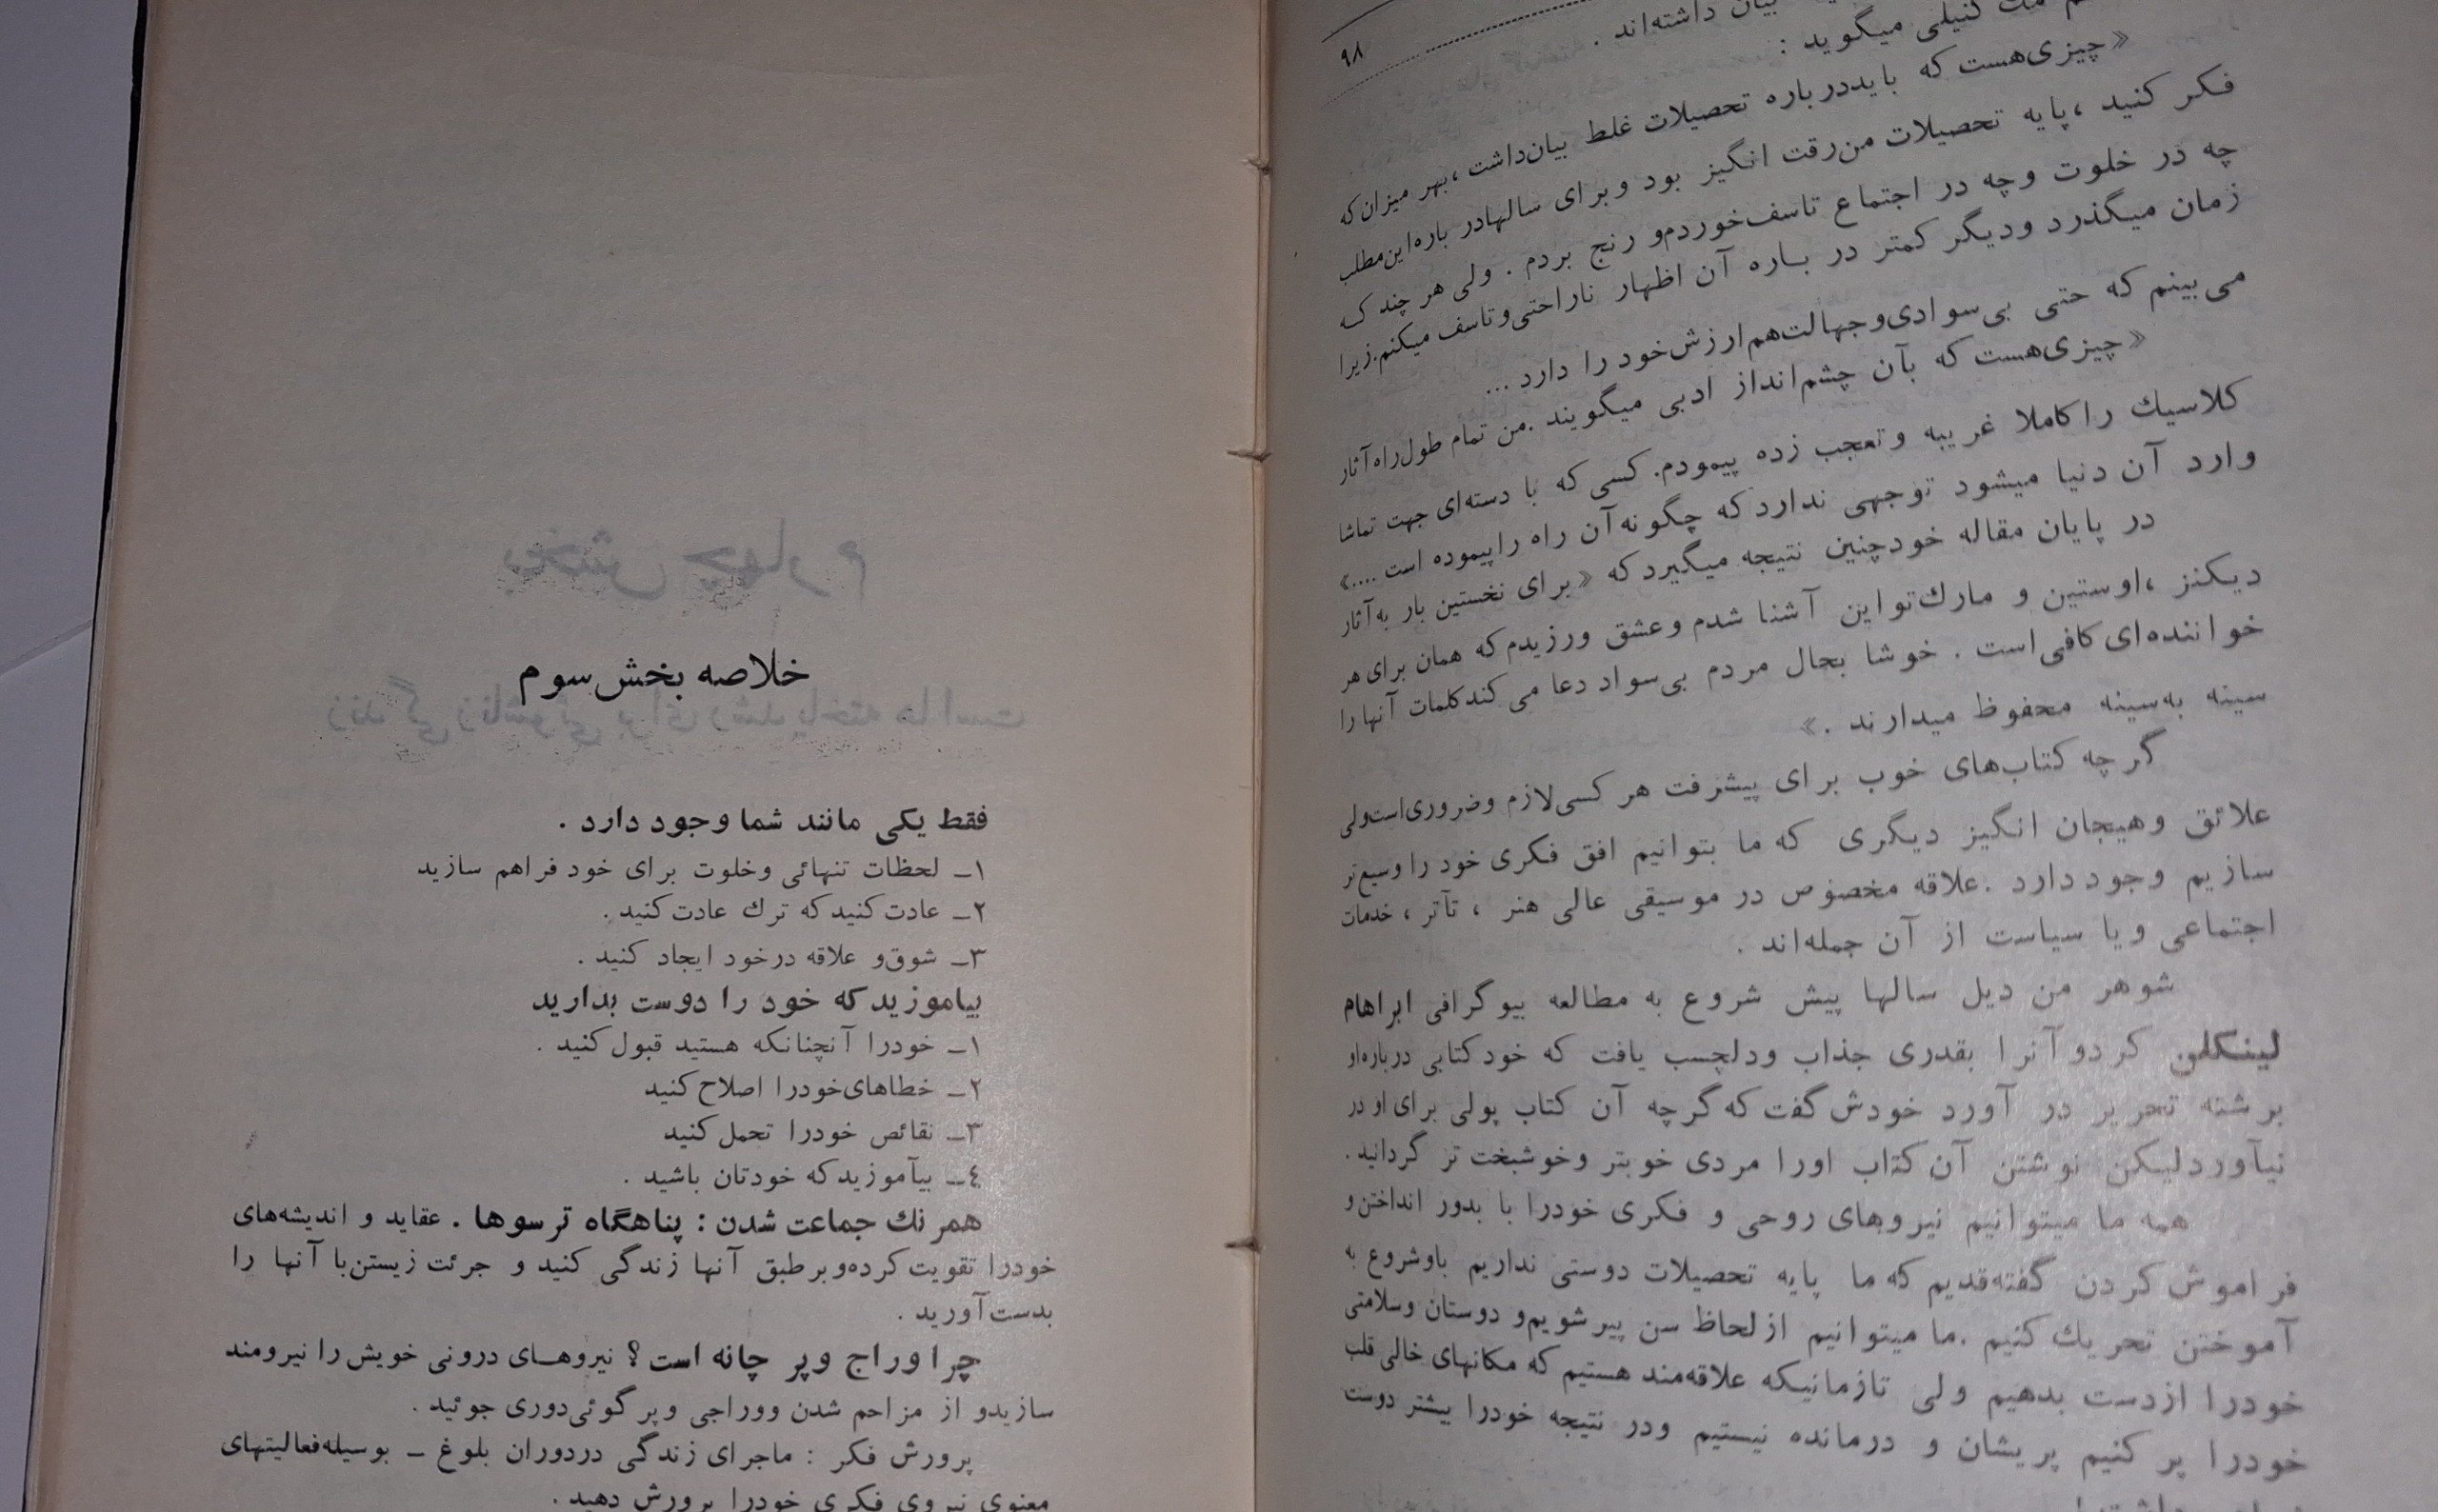 ۹۸
بیان داشته‌اند .
مك كنیلی میگوید :
«چیزی‌هست که بایددرباره تحصیلات غلط بیان‌داشت ،بهر میزان‌که
فکر کنید ،پایه تحصیلات من‌رقت انگیز بود وبرای سالهادر باره‌این‌مطلب
چه در خلوت وچه در اجتماع تاسف‌خوردم‌و رنج بردم . ولی هر چند ک
زمان میگذرد ودیگر کمتر در بـاره آن اظهار ناراحتی‌وتاسف میکنم.زیرا
می‌بینم که حتی بی‌سوادی‌وجهالت‌هم‌ارزش‌خود را دارد ...
«چیزی‌هست که بآن چشم‌انداز ادبی میگویند .من تمام طول‌راه‌آثار
کلاسیك راکاملا غریبه وتعجب زده پیمودم. کسی که با دسته‌ای جهت تماشا
وارد آن دنیا میشود توجهی نداردکه چگونه‌آن راه راپیموده است ....»
در پایان مقاله خودچنین نتیجه میگیردکه «برای نخستین بار به‌آثار
دیکنز ،اوستین و مارك‌تواین آشنا شدم وعشق ورزیدم‌که همان برای هر
خواننده‌ای‌کافی‌است . خوشا بحال مردم بی‌سواد دعا می کندکلمات آنها را
سینه به‌سینه محفوظ میدارند .»
گرچه کتاب‌های خوب برای پیشرفت هر کسی‌لازم وضروری‌است‌ولی
علائق وهیجان انگیز دیگری که ما بتوانیم افق فکری خود را وسیع‌تر
سازیم وجود دارد .علاقه مخصوص در موسیقی عالی هنر ، تآتر ، خدمات
اجتماعی ویا سیاست از آن جمله‌اند .
شوهر من دیل سالها پیش شروع به مطالعه بیوگرافی ابراهام
لینـکلن کردو آنرا بقدری جذاب ودلچسب یافت که خودکتابی درباره‌او
برشته تحریر در آورد خودش‌گفت‌که‌گرچه آن کتاب پولی برای او در
نیآوردلیکن نوشتن آن‌کتاب اورا مردی خوبتر وخوشبخت تر گردانید.
همه ما میتوانیم نیروهای روحی و فکری خودرا با بدور انداختن‌و
فراموش‌کردن گفته‌قدیم که ما پایه تحصیلات دوستی نداریم باوشروع به
آموختن تحریك‌کنیم .ما میتوانیم ازلحاظ سن پیرشویم‌و دوستان وسلامتی
خودرا ازدست بدهیم ولی تازمانیکه علاقه‌مند هستیم که مکانهای خالی قلب
خودرا پر کنیم پریشان و درمانده نیستیم ودر نتیجه خودرا بیشتر دوست
خلاصه بخش‌سوم
فقط یکی مانند شما وجود دارد .
۱ـ لحظات تنهائی وخلوت برای خود فراهم سازید
۲ـ عادت‌کنیدکه ترك عادت‌کنید .
۳ـ شوق‌و علاقه درخود ایجاد کنید .
بیاموزیدکه خود را دوست بدارید
۱ـ خودرا آنچنانکه هستید قبول‌کنید .
۲ـ خطاهای‌خودرا اصلاح‌کنید
۳ـ نقائص خودرا تحمل‌کنید
٤ـ بیآموزیدکه خودتان باشید .
همرنك جماعت شدن : پناهگاه ترسوها . عقاید و اندیشه‌های
خودرا تقویت‌کرده‌وبرطبق آنها زندگی کنید و جرئت زیستن‌با آنها را
بدست‌آورید .
چرا وراج وپر چانه است ؟ نیروهـای درونی خویش را نیرومند
سازیدو از مزاحم شدن ووراجی وپرگوئی‌دوری جوئید .
پرورش فکر : ماجرای زندگی دردوران بلوغ ـ بوسیله‌فعالیتهای
معنوی نیروی فکری خودرا پرورش دهید .